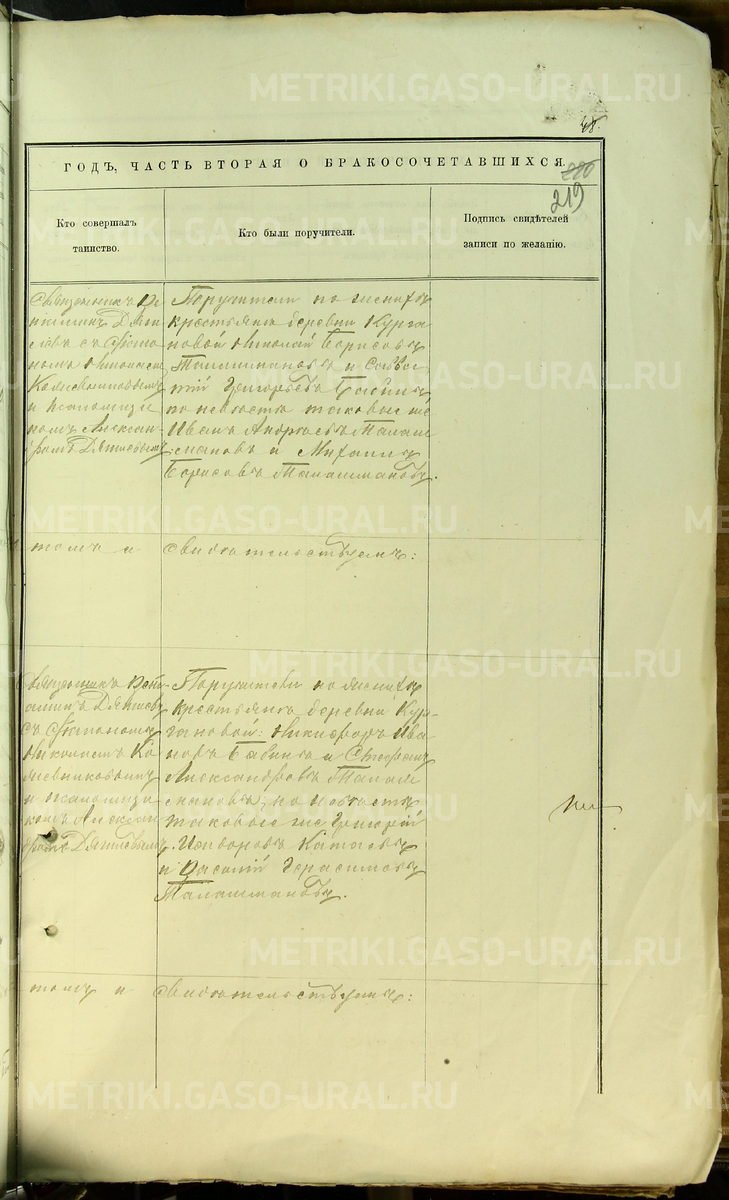 48.
ГОДЪ, ЧАСТЬ ВТОРАЯ О БРАКОСОЧЕТАВШИХСЯ.
220
219
Кто совершалъ
таинство.
Кто были поручители.
Подпись свидѣтелей
записи по желанію.
Священникъ Ве
ніаминъ Дягилевъ
левъ съ діако
номъ Николаемъ
и псаломщи
комъ Алексан-
дромъ Дягилевымъ
Поручители по женихѣ
крестьяне деревни Курга
новой Николай Борисовъ
Талашмановъ и
Григорьевъ Бабинъ
по невѣстѣ таковые же
Иванъ Андреевъ Талаш
мановъ и Михаилъ
Борисовъ Талашмановъ.
томъ и свидѣтельствуемъ:
Священникъ Вені
аминъ Дягилевъ
съ діакономъ
Николаемъ Ко
жевниковымъ
и псаломщи
комъ Алексан
дромъ Дягилевымъ
Поручители по женихѣ
крестьяне деревни Кур-
гановой: Никифоръ Ива
новъ Бабинъ и Стефанъ
Александровъ Талаш
мановъ; по невѣстѣ
таковые же Григорій
Исидоровъ Катаевъ
и Василій Герасимовъ
Талашмановъ.
томъ и свидѣтельствуемъ:
METRIKI.GASO-URAL.RU